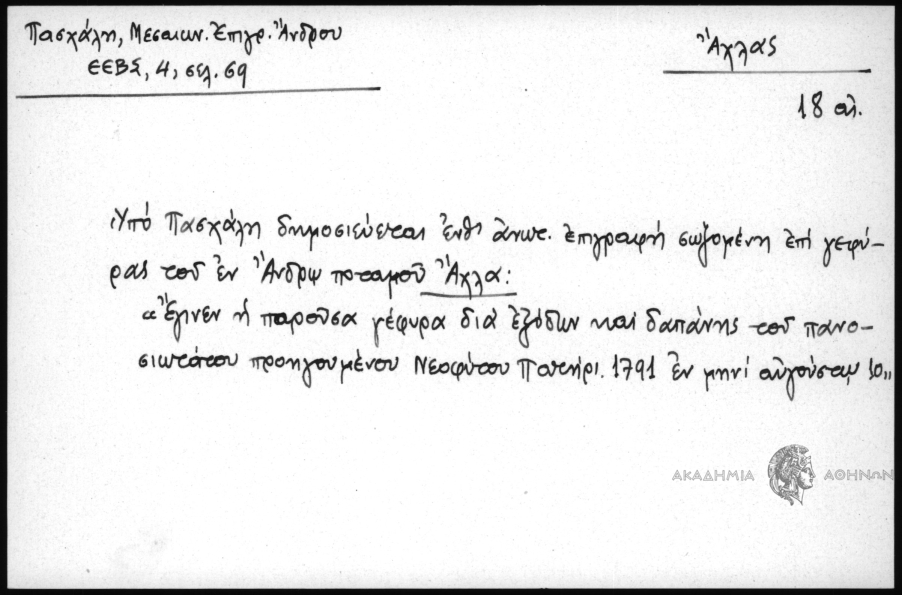 Πασχάλη, Μεσαιων. Ἐπιγρ. Ἄνδρου
ΕΕΒΣ, 4, σελ. 69
Ἄχλας
18 αἰ.
Ὑπό Πασχάλη δημοσιεύεται ἔνθ' ἀνωτ. ἐπιγραφή σωζομένη ἐπί γεφύ-
ρας τοῦ ἐν Ἄνδρῳ ποταμοῦ Ἄχλα:
«Ἔγινεν ἡ παροῦσα γέφυρα διά ἐξόδων καί δαπάνης τοῦ πανο-
σιωτάτου προηγουμένου Νεοφύτου Πατήρι. 1791 ἐν μηνί αὐγούστῳ 10„
ΑΚΑΔΗΜΙΑ ΑΘΗΝΩΝ